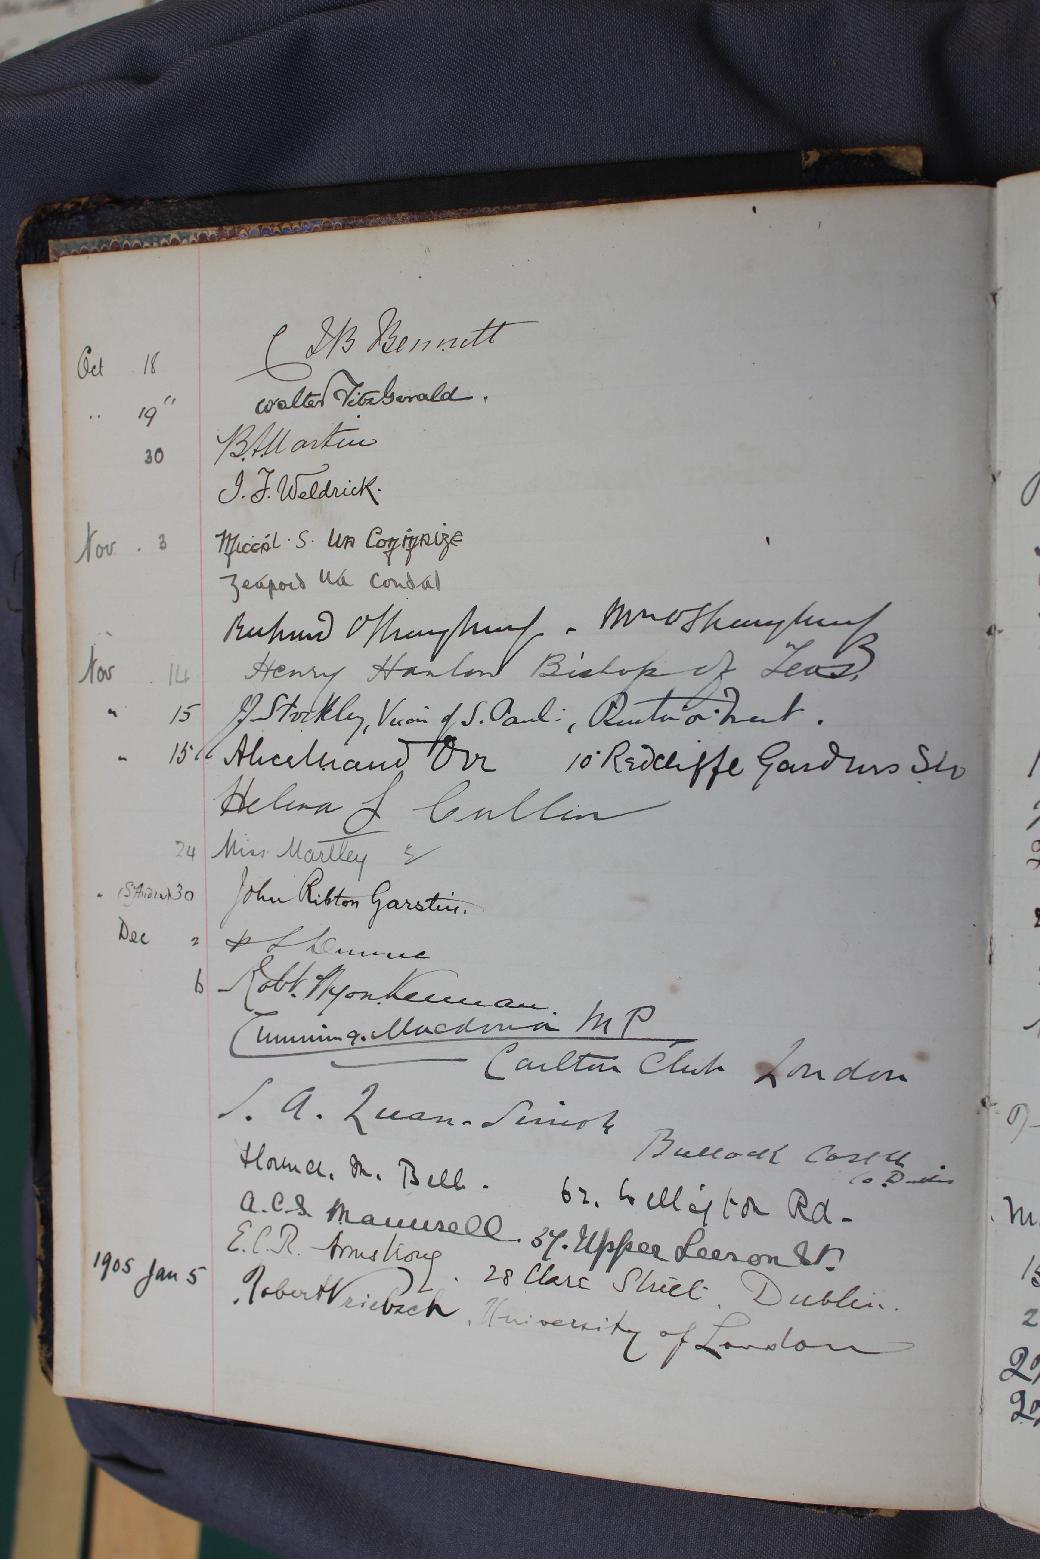 Oct 18 J B Bennett
" 19" Walter FitzGerald.
30 B. Martin
J. F. Weldrick.
Nov. 3 Mícéál. S. Ua
Ua Condal
Richard O'Shaughnessy - Mrs O'Shaughnessy
Nov 14 Henry Hanlon Bishop of Teos
" 15 J Stockley, Vicar of S. Paul:, Burton o: Trent.
" 15 Orr 15 Redcliffe Gardens SW
Helena L Cullin
24 Miss Martley
" (S. Andrew) 30 John Ribton Garstin.
Dec 2
6 Robt.
Cumming. Macdona M P
Carlton Club London
S. A. Quan-Smith
Bullock Castle
Co. Dublin
M. Bell. 62. Wellington Rd-
A.C.S Maunsell. 37. Upper Leeson St.
E.C.R. Armstrong. 28 Clare Street. Dublin.
1905 Jan 5 Robert Priebsch, University of London